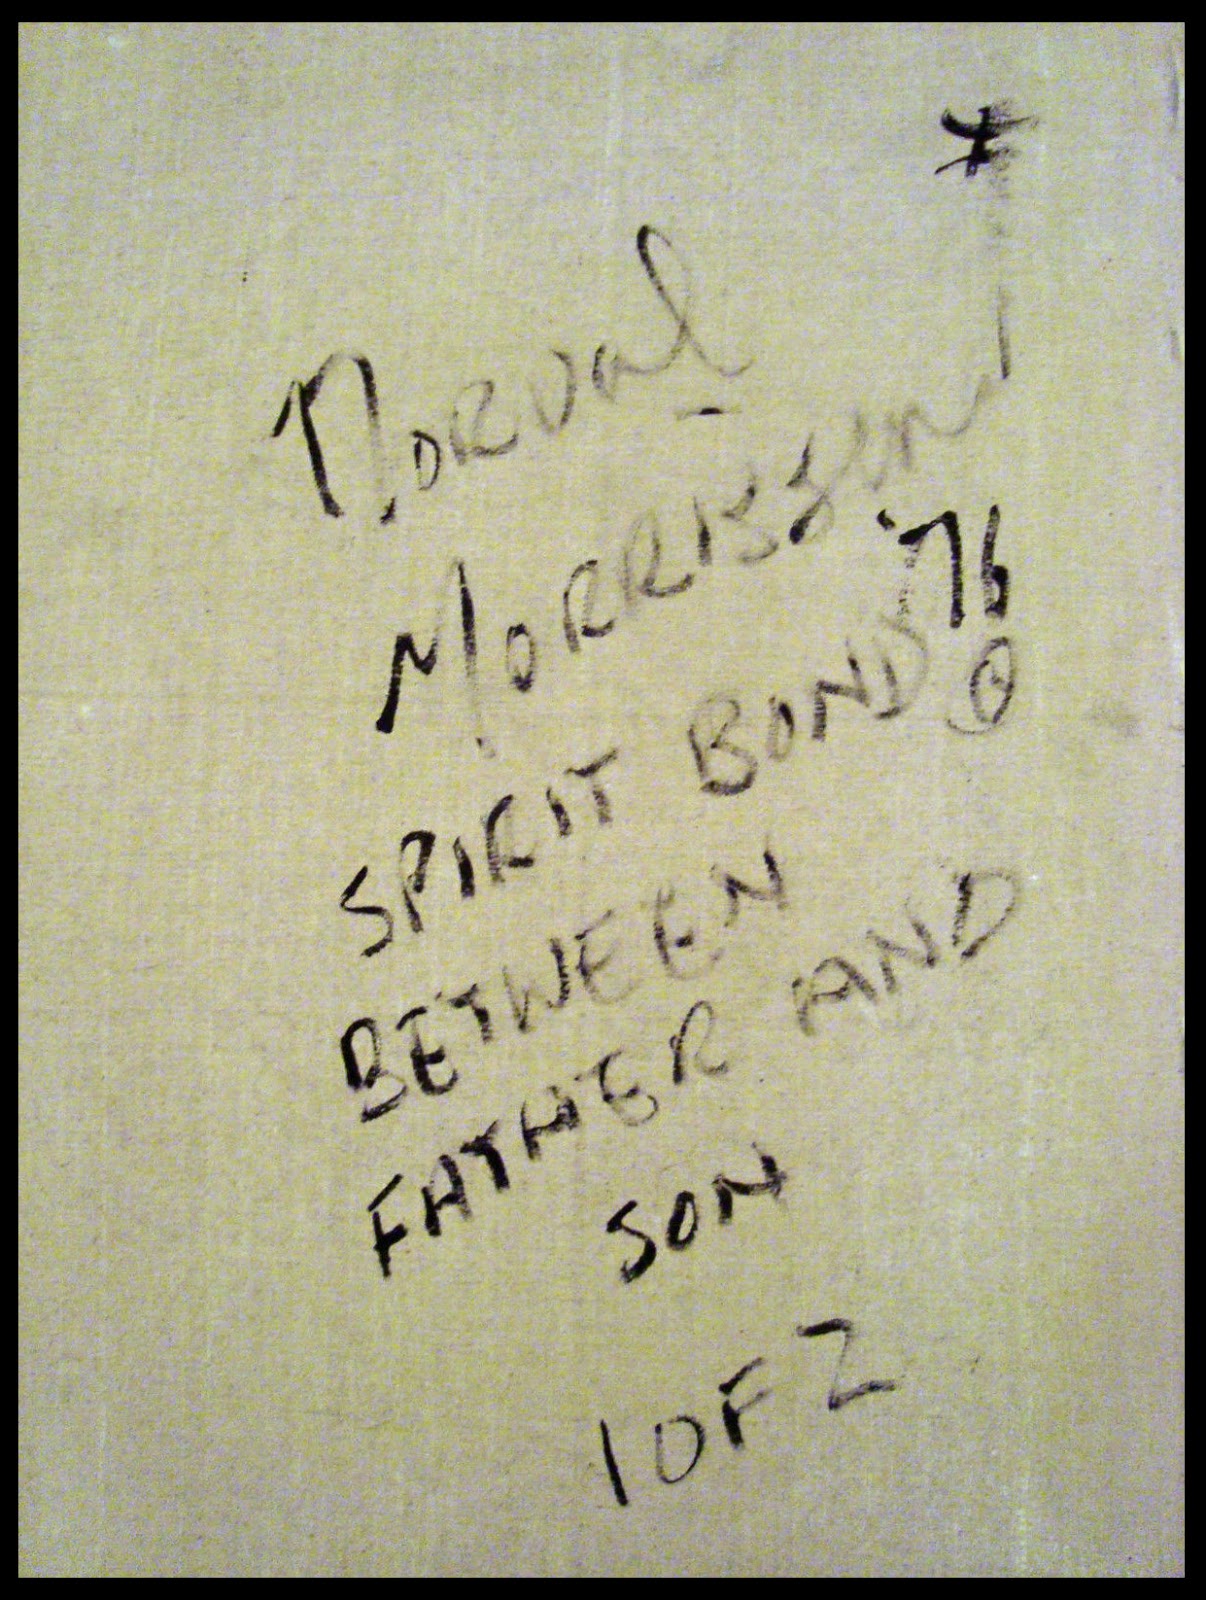 Norval
Morrisseau
'76
SPIRIT BOND
BETWEEN
FATHER AND
SON
1 OF 2